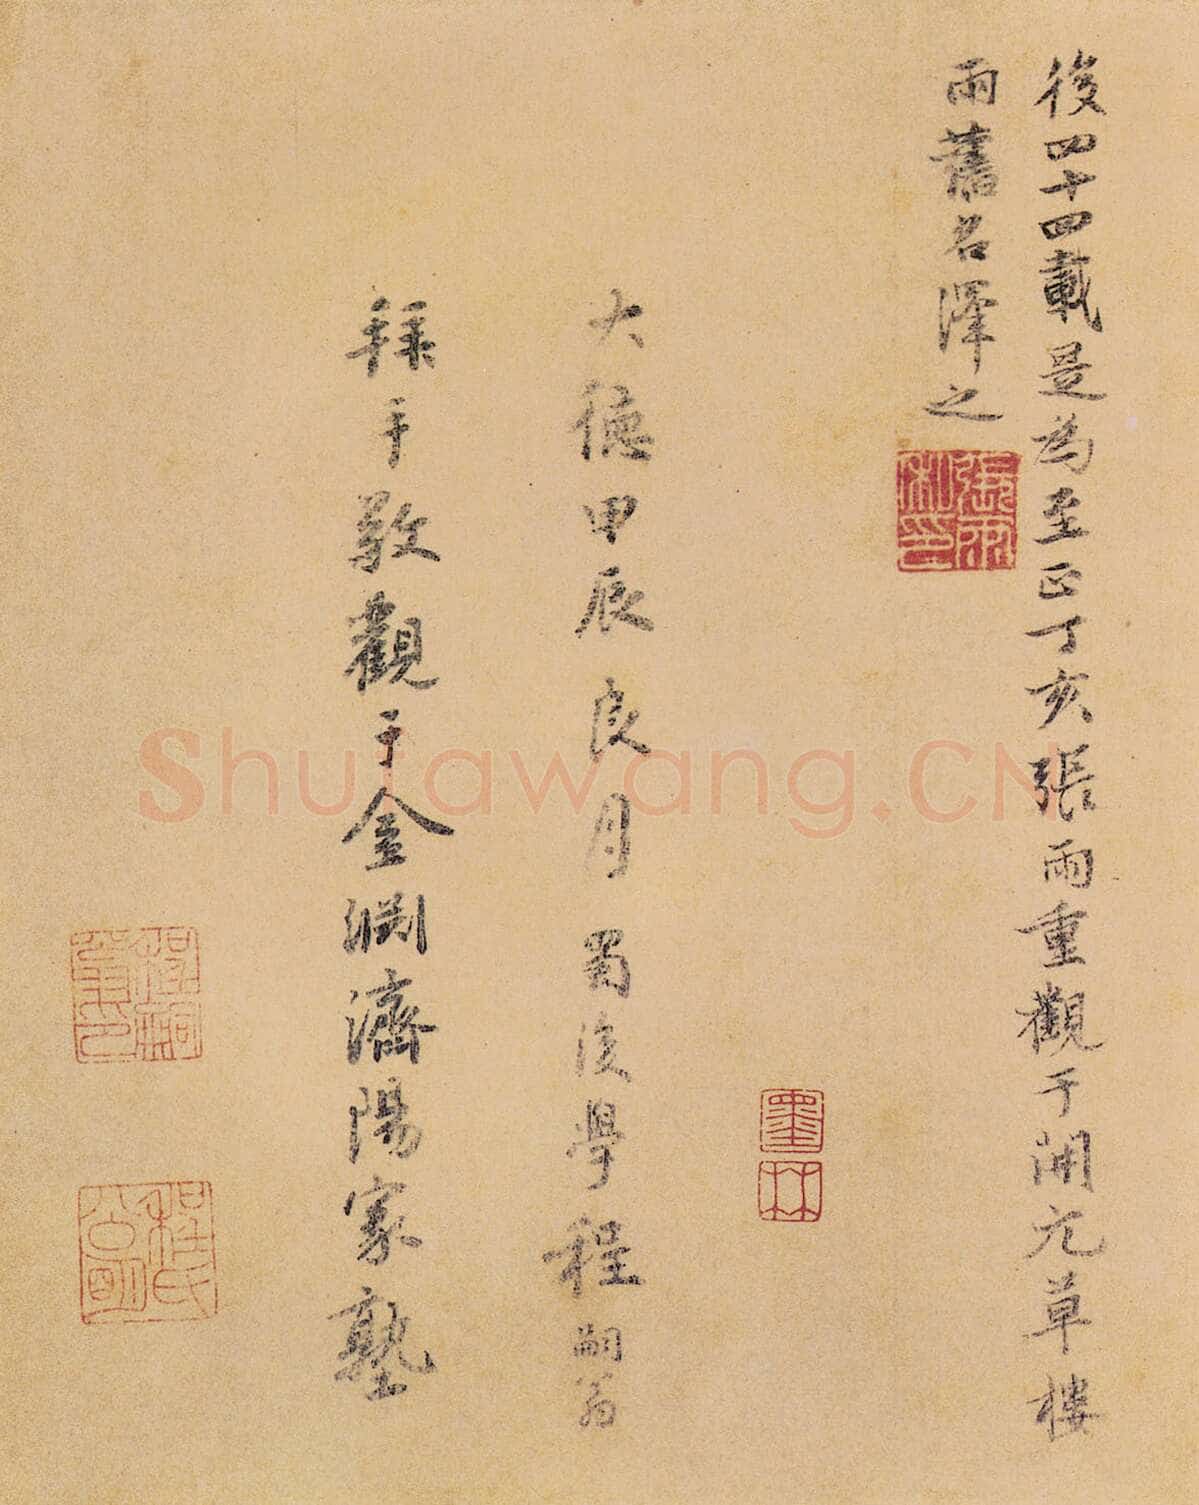 後四十四載是為至正丁亥張雨重觀于開元草樓
雨舊名澤之
張雨私印
墨林
大德甲辰良月蜀後學程嗣翁
拜手敬觀于金淵濟陽家塾
程氏
Shufawang.CN